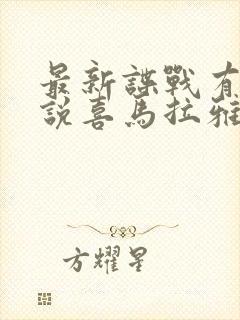 最新諜戰有
說喜馬拉雅
方耀星